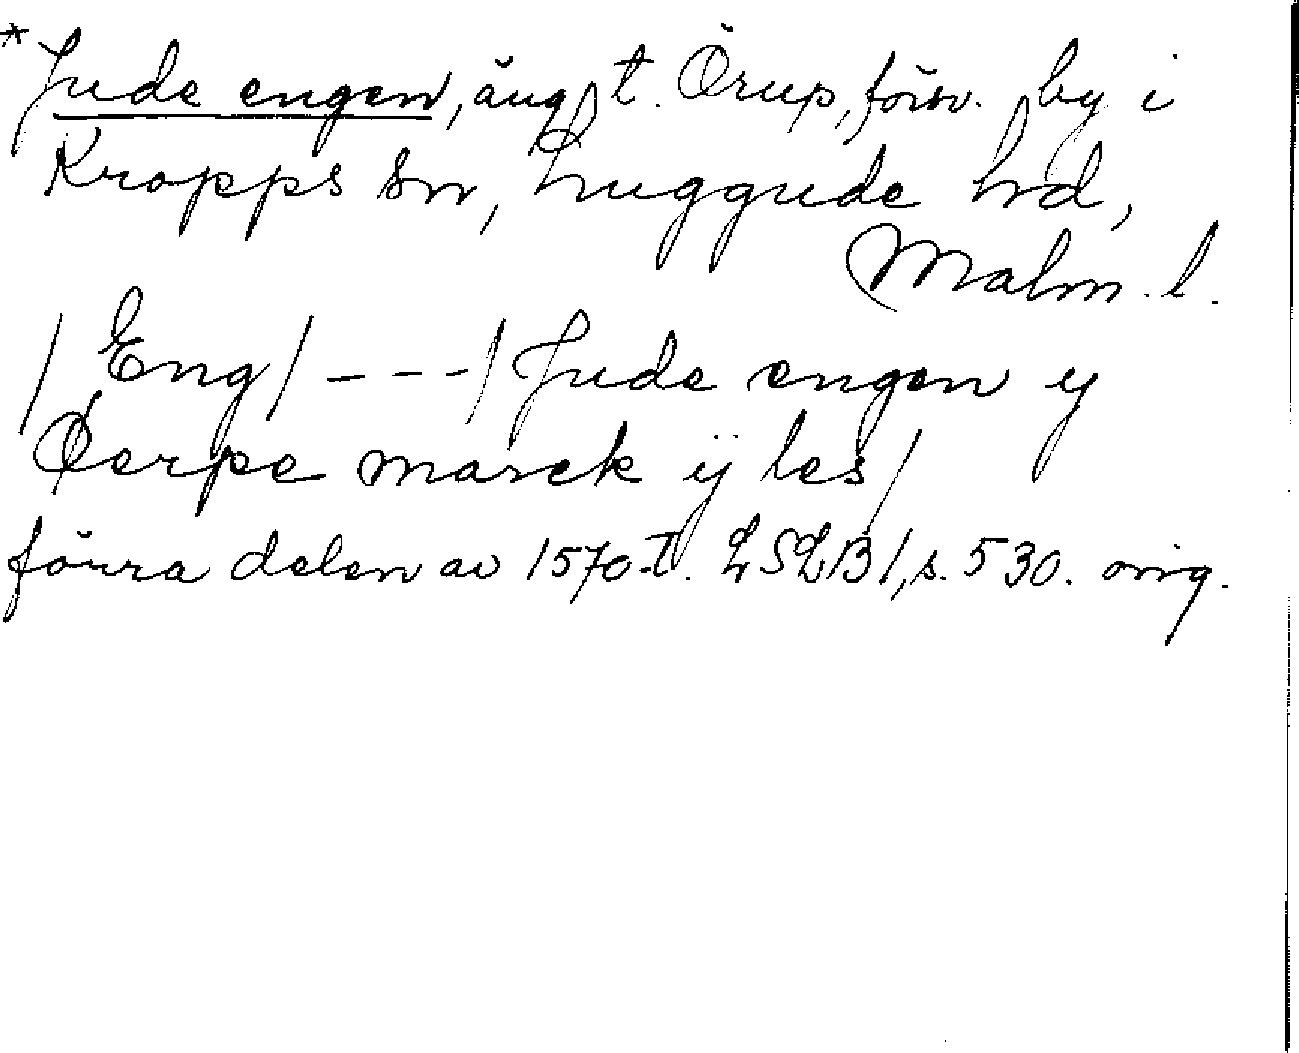 *Jude engen, äng t. Örup, försv. by i
Kropps sn, Luggude hd,
Malm. l.
/ Eng / - - - / Jude engen y
Øerpe marck ij les /
förra delen av 1570-t. LSLB 1, s. 530. orig.